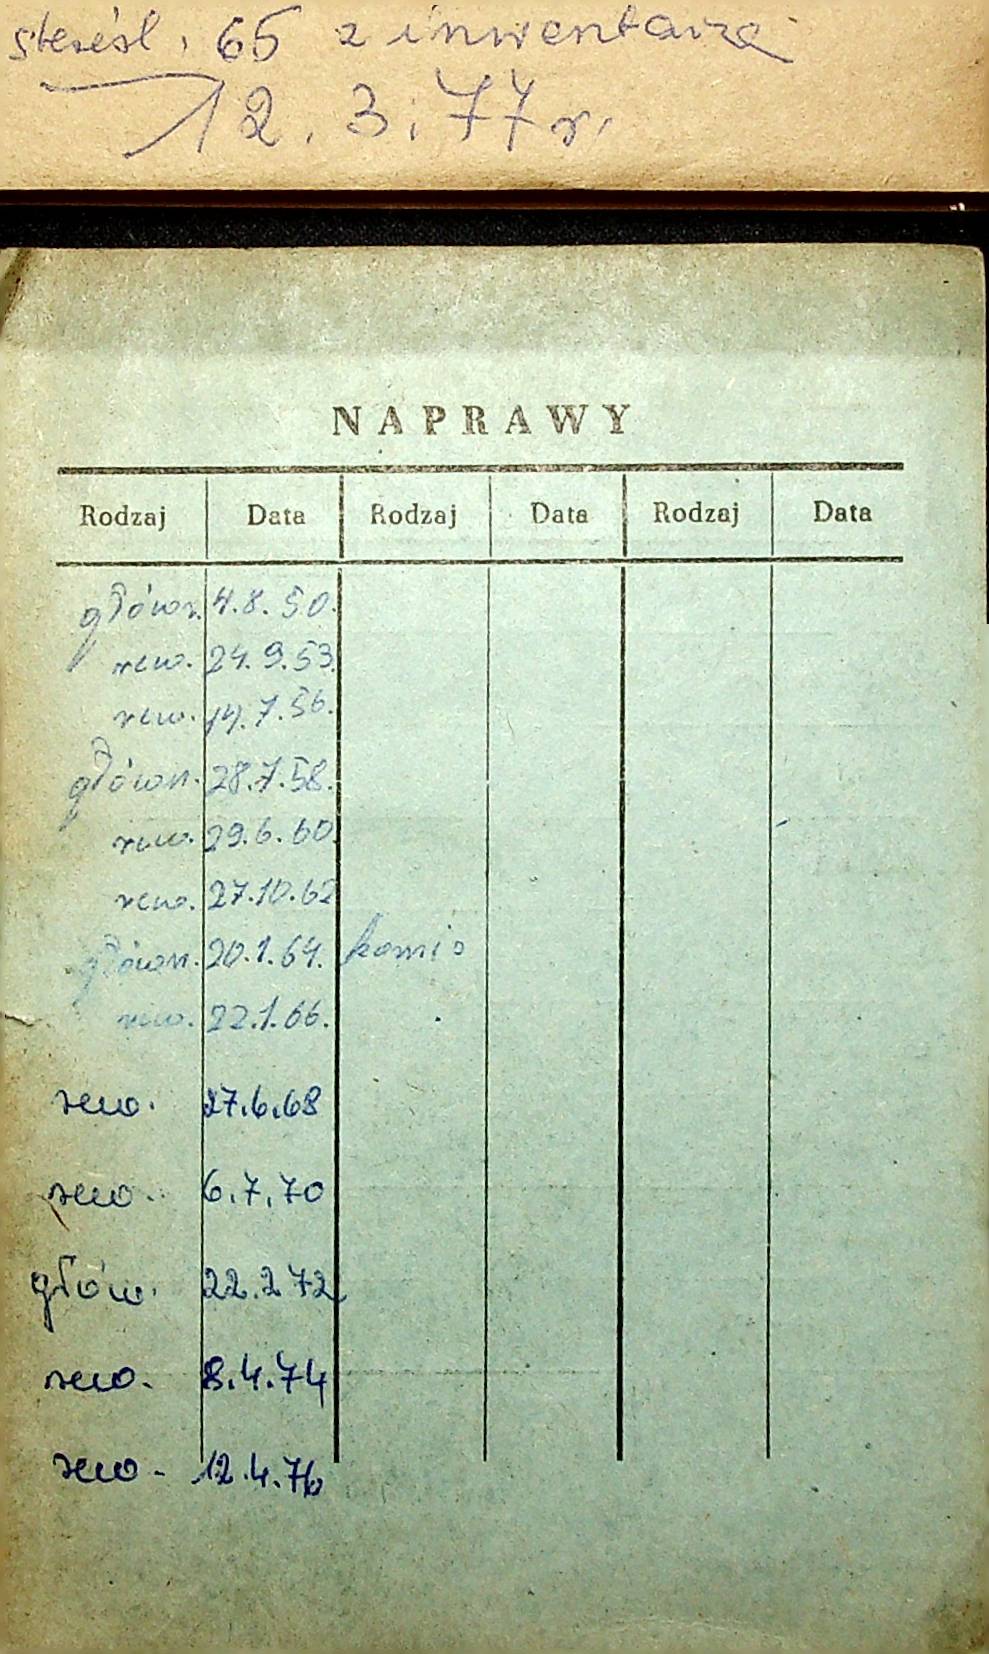 skreśl. z inwentarza
12.3.77 r.
NAPRAWY
Rodzaj Data Rodzaj Data Rodzaj Data
główn. 4.8.50.
rew. 24.9.53.
rew. 14.7.56.
główn. 28.7.58.
rew. 29.6.60.
rew. 27.10.62
główn. 20.1.64.
rew. 22.1.66.
rew. 27.6.68
rew. 6.7.70
głów. 22.2.72
rew. 8.4.74
rew. 12.4.76